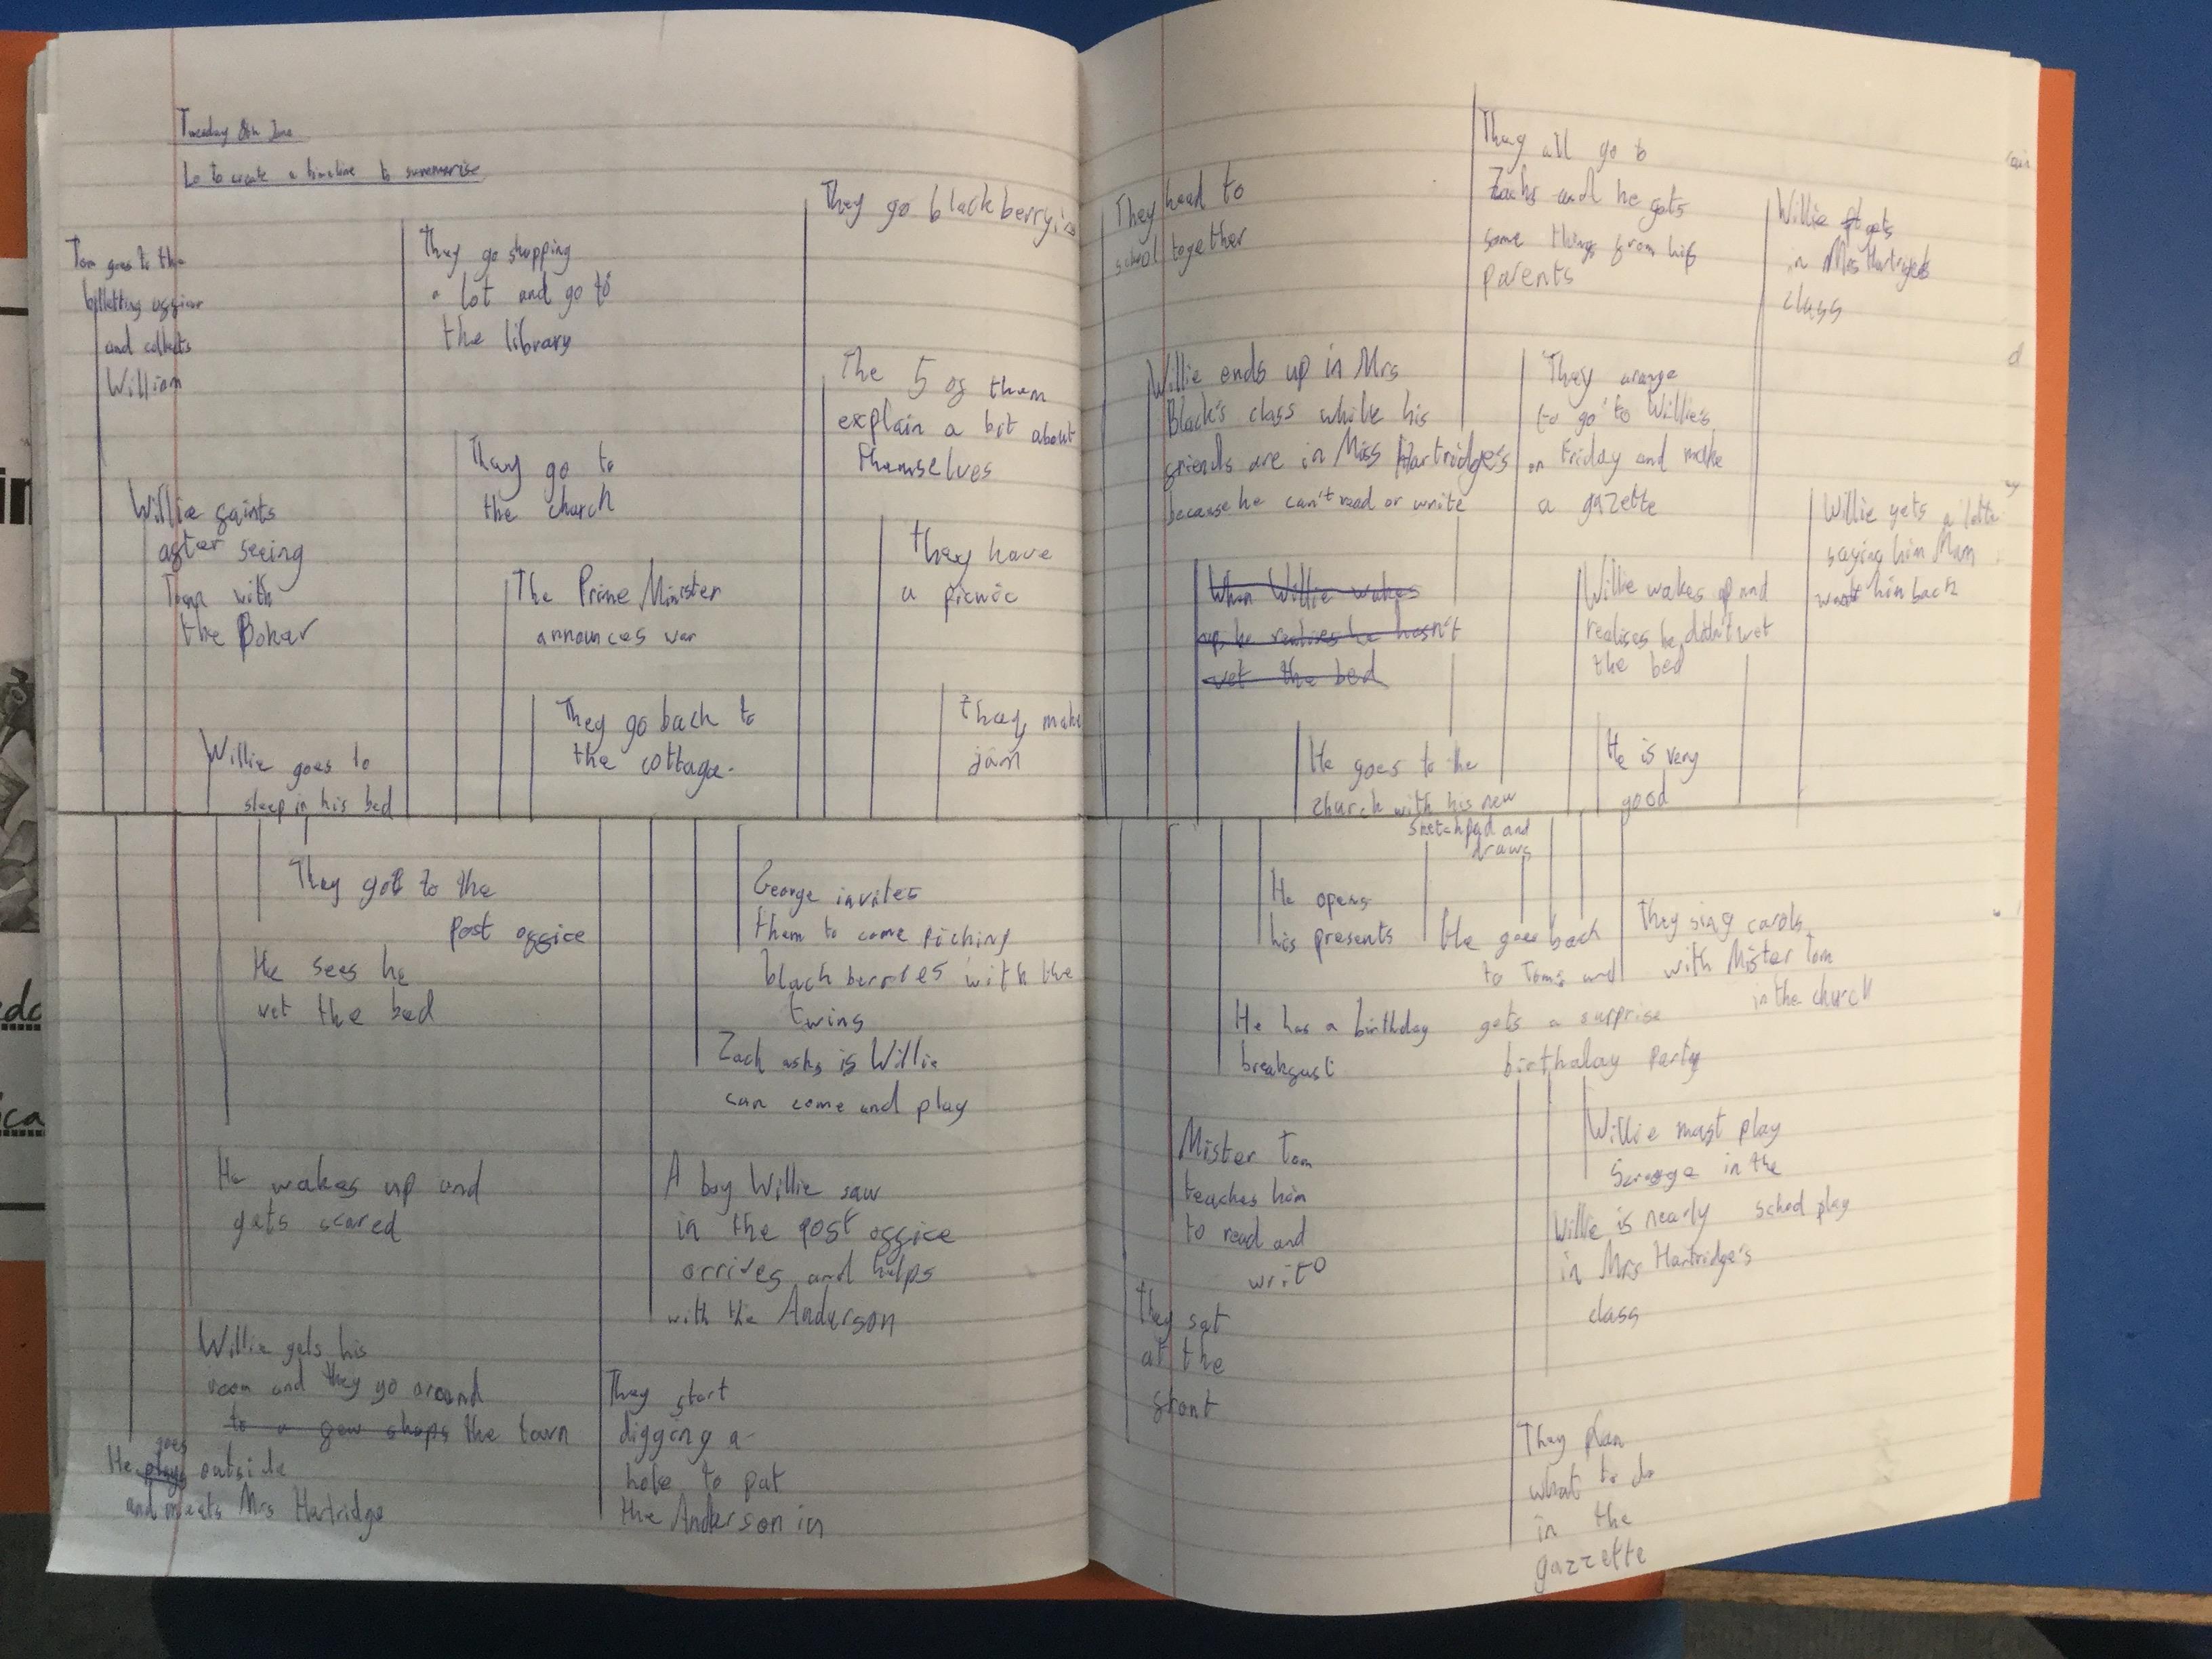 Tuesday 8th June
Lo to create a timeline to summerise
Tom goes to the
billetting offier
and collects
William
Willie faints
after seeing
Tom with
the Poker
Willie goes to
sleep in his bed
They go shopping
a lot and go to
the library
They go to
the church
The Prime Minister
announces war
They go back to
the cottage.
They go blackberrying
The 5 of them
explain a bit about
themselves
they have
a picnic
they make
jam
They got to the
post office
He sees he
wet the bed
He wakes up and
gets scared
Willie gets his
room and they go around
to a few shops the town
He plays goes outside
and meets Mrs Hartridge
George invites
them to come picking
blackberries with the
twins
Zach asks if Willie
can come and play
A boy Willie saw
in the post office
arrives and helps
with the Anderson
They start
digging a
hole to put
the Anderson in
They head to
school together
Willie ends up in Mrs
Black's class while his
friends are in Miss Hartridge's
because he can't read or write
When Willie wakes
up he realises he hasn't
wet the bed
He goes to the
church with his new
sketchpad and
draws
They all go to
Zachs and he gets
some things from his
parents
They arange
to go to Willie's
on Friday and make
a gazette
Willie wakes up and
realises he didn't wet
the bed
He is very
good
Willie gets
in Mrs Hartridge's
class
Willie gets a lette
saying him Mum
want him back
He opens
his presents
He has a birthday
breakfast
Mister Tom
teaches him
to read and
write
they sat
at the
front
He goes back
to Toms and
gets a surprise
birthday party
They sing carols
with Mister Tom
in the church
Willie must play
Scrooge in the
school play
Willie is nearly
in Mrs Hartridge's
class
They plan
what to do
in the
gazzette